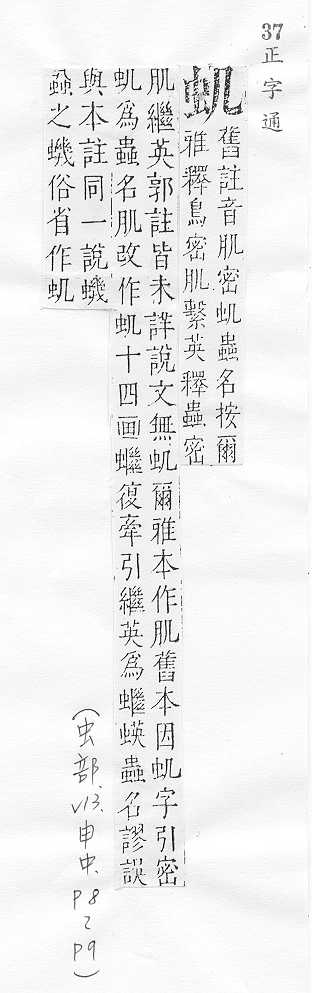 37
正字通
虮
舊註音肌密虮蟲名按爾
雅釋鳥密肌繫英釋蟲密
肌繼英郭註皆未詳說文無虮爾雅本作肌舊本因虮字引密
虮爲蟲名肌改作虮十四画蠿復牽引繼英爲蠿蝧蟲名謬誤
與本註同一說蟣
蝨之蟣俗省作虮
(虫部、v13.申中、P8~P9)